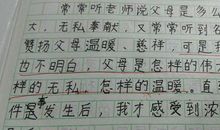 常常听老师说父母是多么
大,无私奉献,又常常听到名
赞扬父母温暖、慈祥,可是我
也不明白,父母是怎样的伟大
样的无私,怎样的温暖。直
件事发生后,我才感受到浓